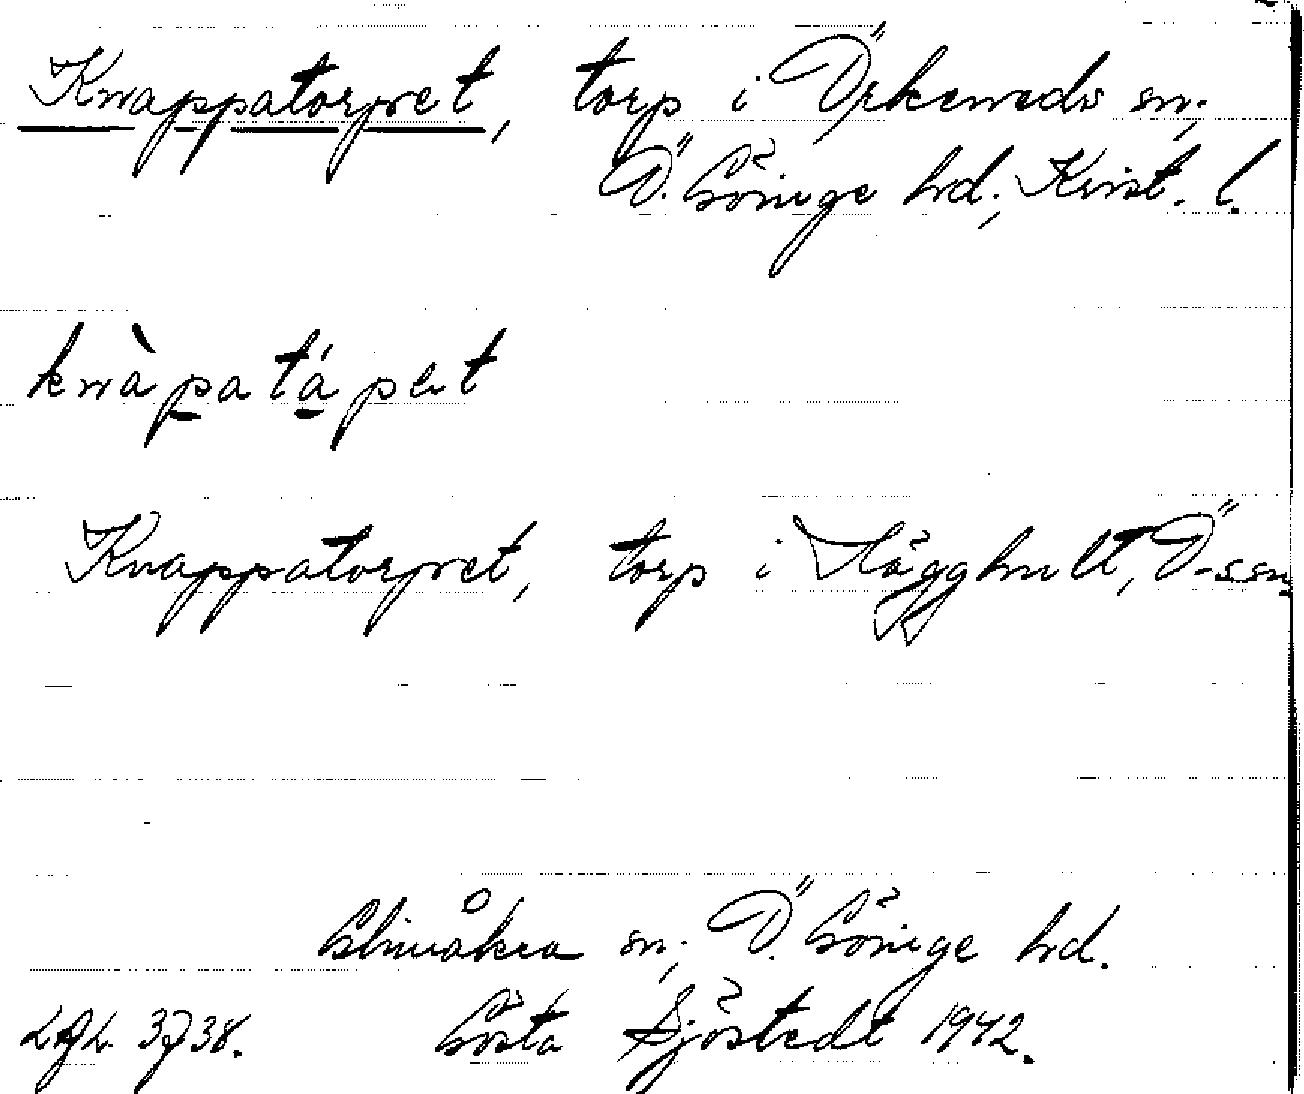 Knappatorpet, torp i Örkeneds sn;
Ö. Göinge hd; Krist. l.
knàpatá pet
Knappatorpet, torp i Hägghult, Ö-s sn
Glimåkra sn; Ö. Göinge hd.
Gösta Sjöstedt 1942.